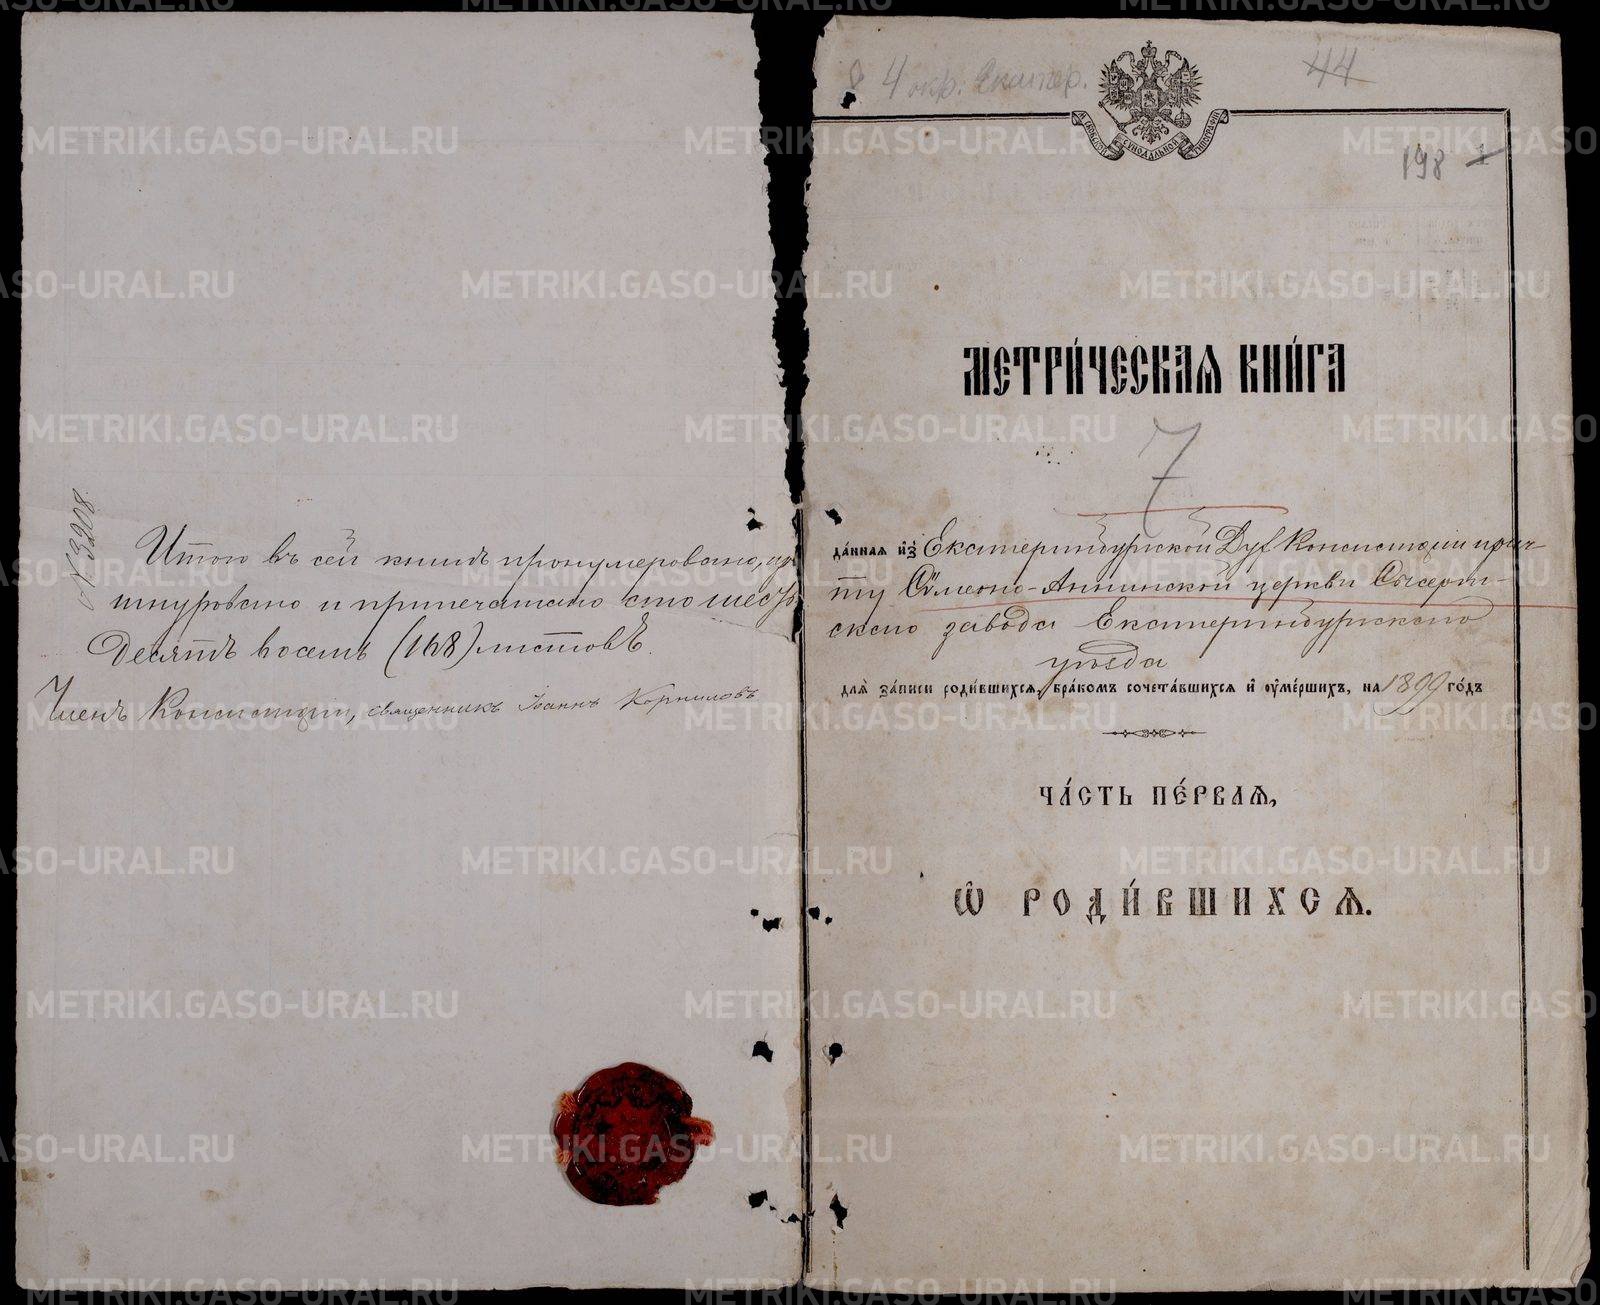 № 3208.
Итого въ сей книгѣ пронумеровано,
шнуровано и припечатано сто шесть
десятъ восемь (168) листовъ.
Членъ Консисторіи, священникъ Іоаннъ Корниловъ
4 окр. Екатер.
44
198
СѴНОДАЛЬНОЙ ТИПОГРАФІИ
МЕТРИ́ЧЕСКАѦ КНИ́ГА
7
да́ннаѧ и҆з̾ Екатеринбургской Дух Консисторіи прич-
ту Сѵмеоно-Аннинской церкви Сысерт-
скаго завода Екатеринбургскаго
уѣзда
длѧ̀ за́писи роди́вшихсѧ, бра́комъ сочета́вшихсѧ и҆ ᲂу҆ме́ршихъ, на 1899 го́дъ
ЧА́СТЬ ПЕ́РВАѦ,
Ѡ҆ РОДИ́ВШИХСѦ.
METRIKI.GASO-URAL.RU